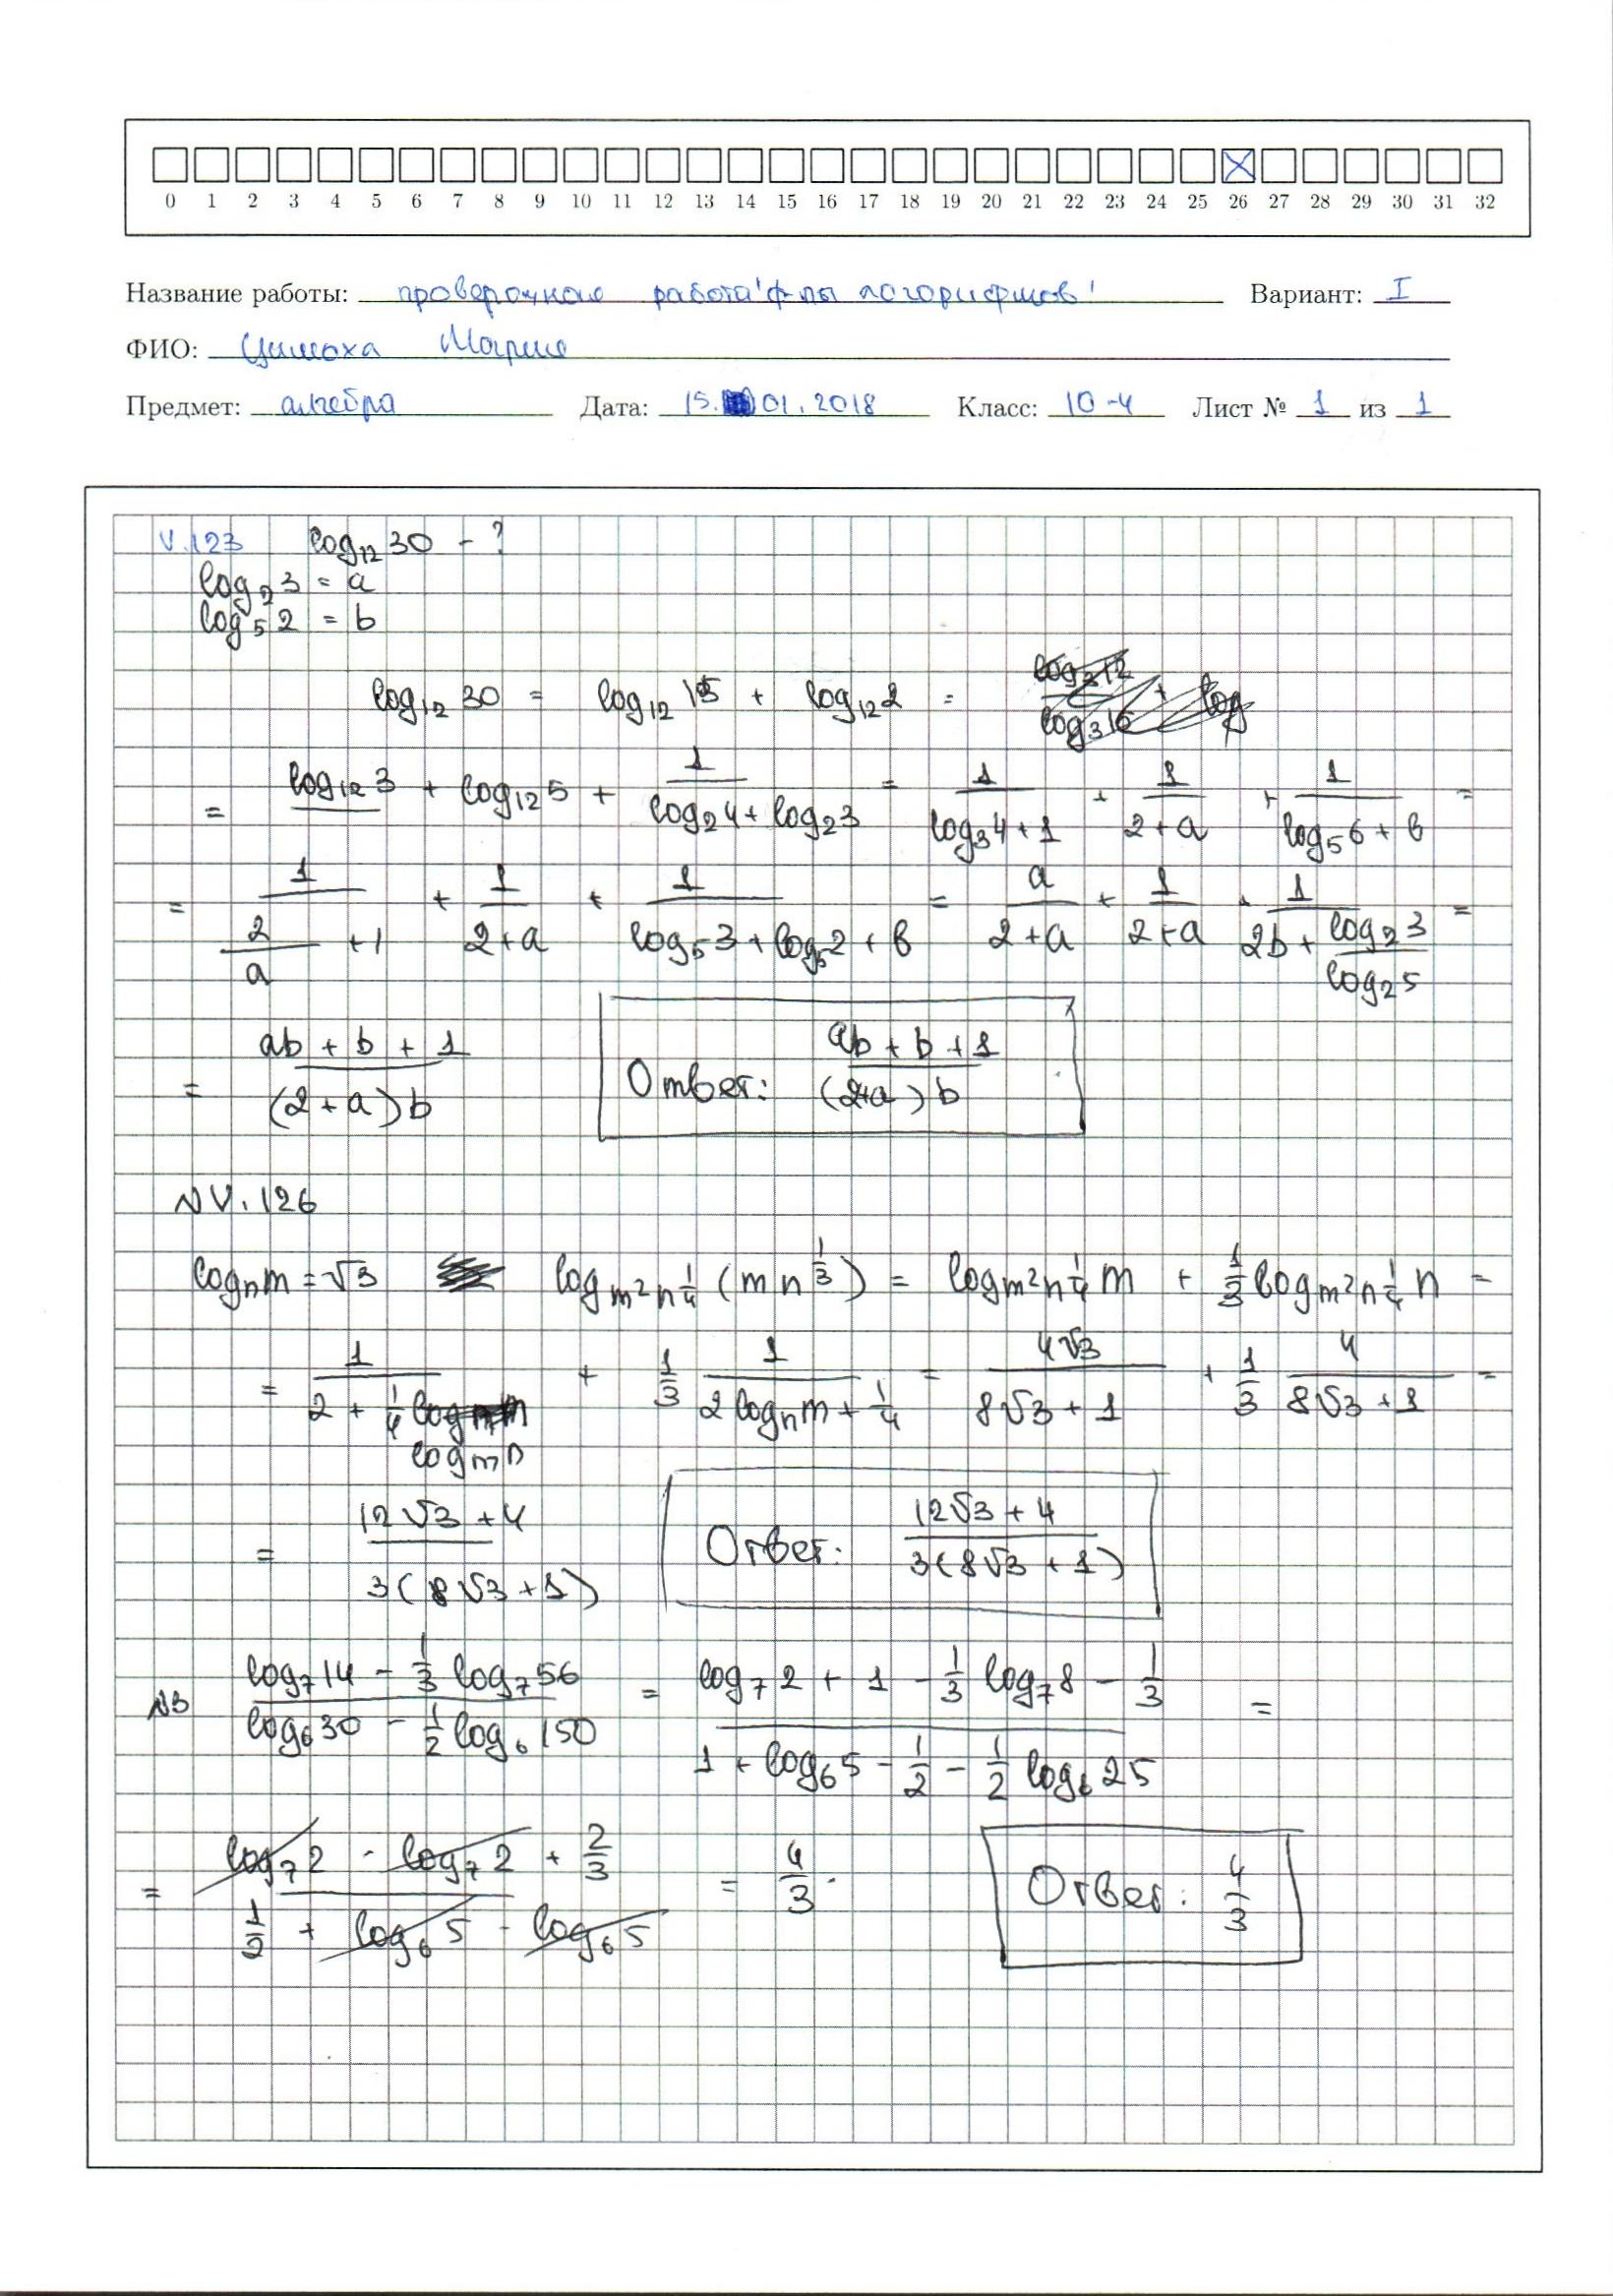 0 1 2 3 4 5 6 7 8 9 10 11 12 13 14 15 16 17 18 19 20 21 22 23 24 25 26 27 28 29 30 31 32
Название работы: проверочная работа "ф-лы логорифмов" Вариант: I
ФИО: Цимоха Мария
Предмет: алгебра Дата: 15.01.2018 Класс: 10-4 Лист № 1 из 1
V.123 log₁₂30 - ?
log₂3 = a
log₅2 = b
log₁₂30 = log₁₂15 + log₁₂2 =
= log₁₂3 + log₁₂5 + 1/(log₂4 + log₂3) = 1/(log₃4 + 1) + 1/(2 + a) + 1/(log₅6 + b) =
= 1/(2/a + 1) + 1/(2 + a) + 1/(log₅3 + log₅2 + b) = a/(2 + a) + 1/(2 + a) + 1/(2b + log₂3/log₂5) =
= (ab + b + 1)/((2 + a)b) Ответ: (ab + b + 1)/((2+a)b)
N V.126
logₙm = √3 log_{m²n^{1/4}} (mn^{1/3}) = log_{m²n^{1/4}} m + 1/3 log_{m²n^{1/4}} n =
= 1/(2 + 1/4 log_m n) + 1/3 · 1/(2 logₙm + 1/4) = 4√3/(8√3 + 1) + 1/3 · 4/(8√3 + 1) =
= (12√3 + 4)/(3(8√3 + 1)) Ответ: (12√3 + 4)/(3(8√3 + 1))
N3 (log₇14 - 1/3 log₇56)/(log₆30 - 1/2 log₆150) = (log₇2 + 1 - 1/3 log₇8 - 1/3)/(1 + log₆5 - 1/2 - 1/2 log₆25) =
= (log₇2 - log₇2 + 2/3)/(1/2 + log₆5 - log₆5) = 4/3. Ответ: 4/3